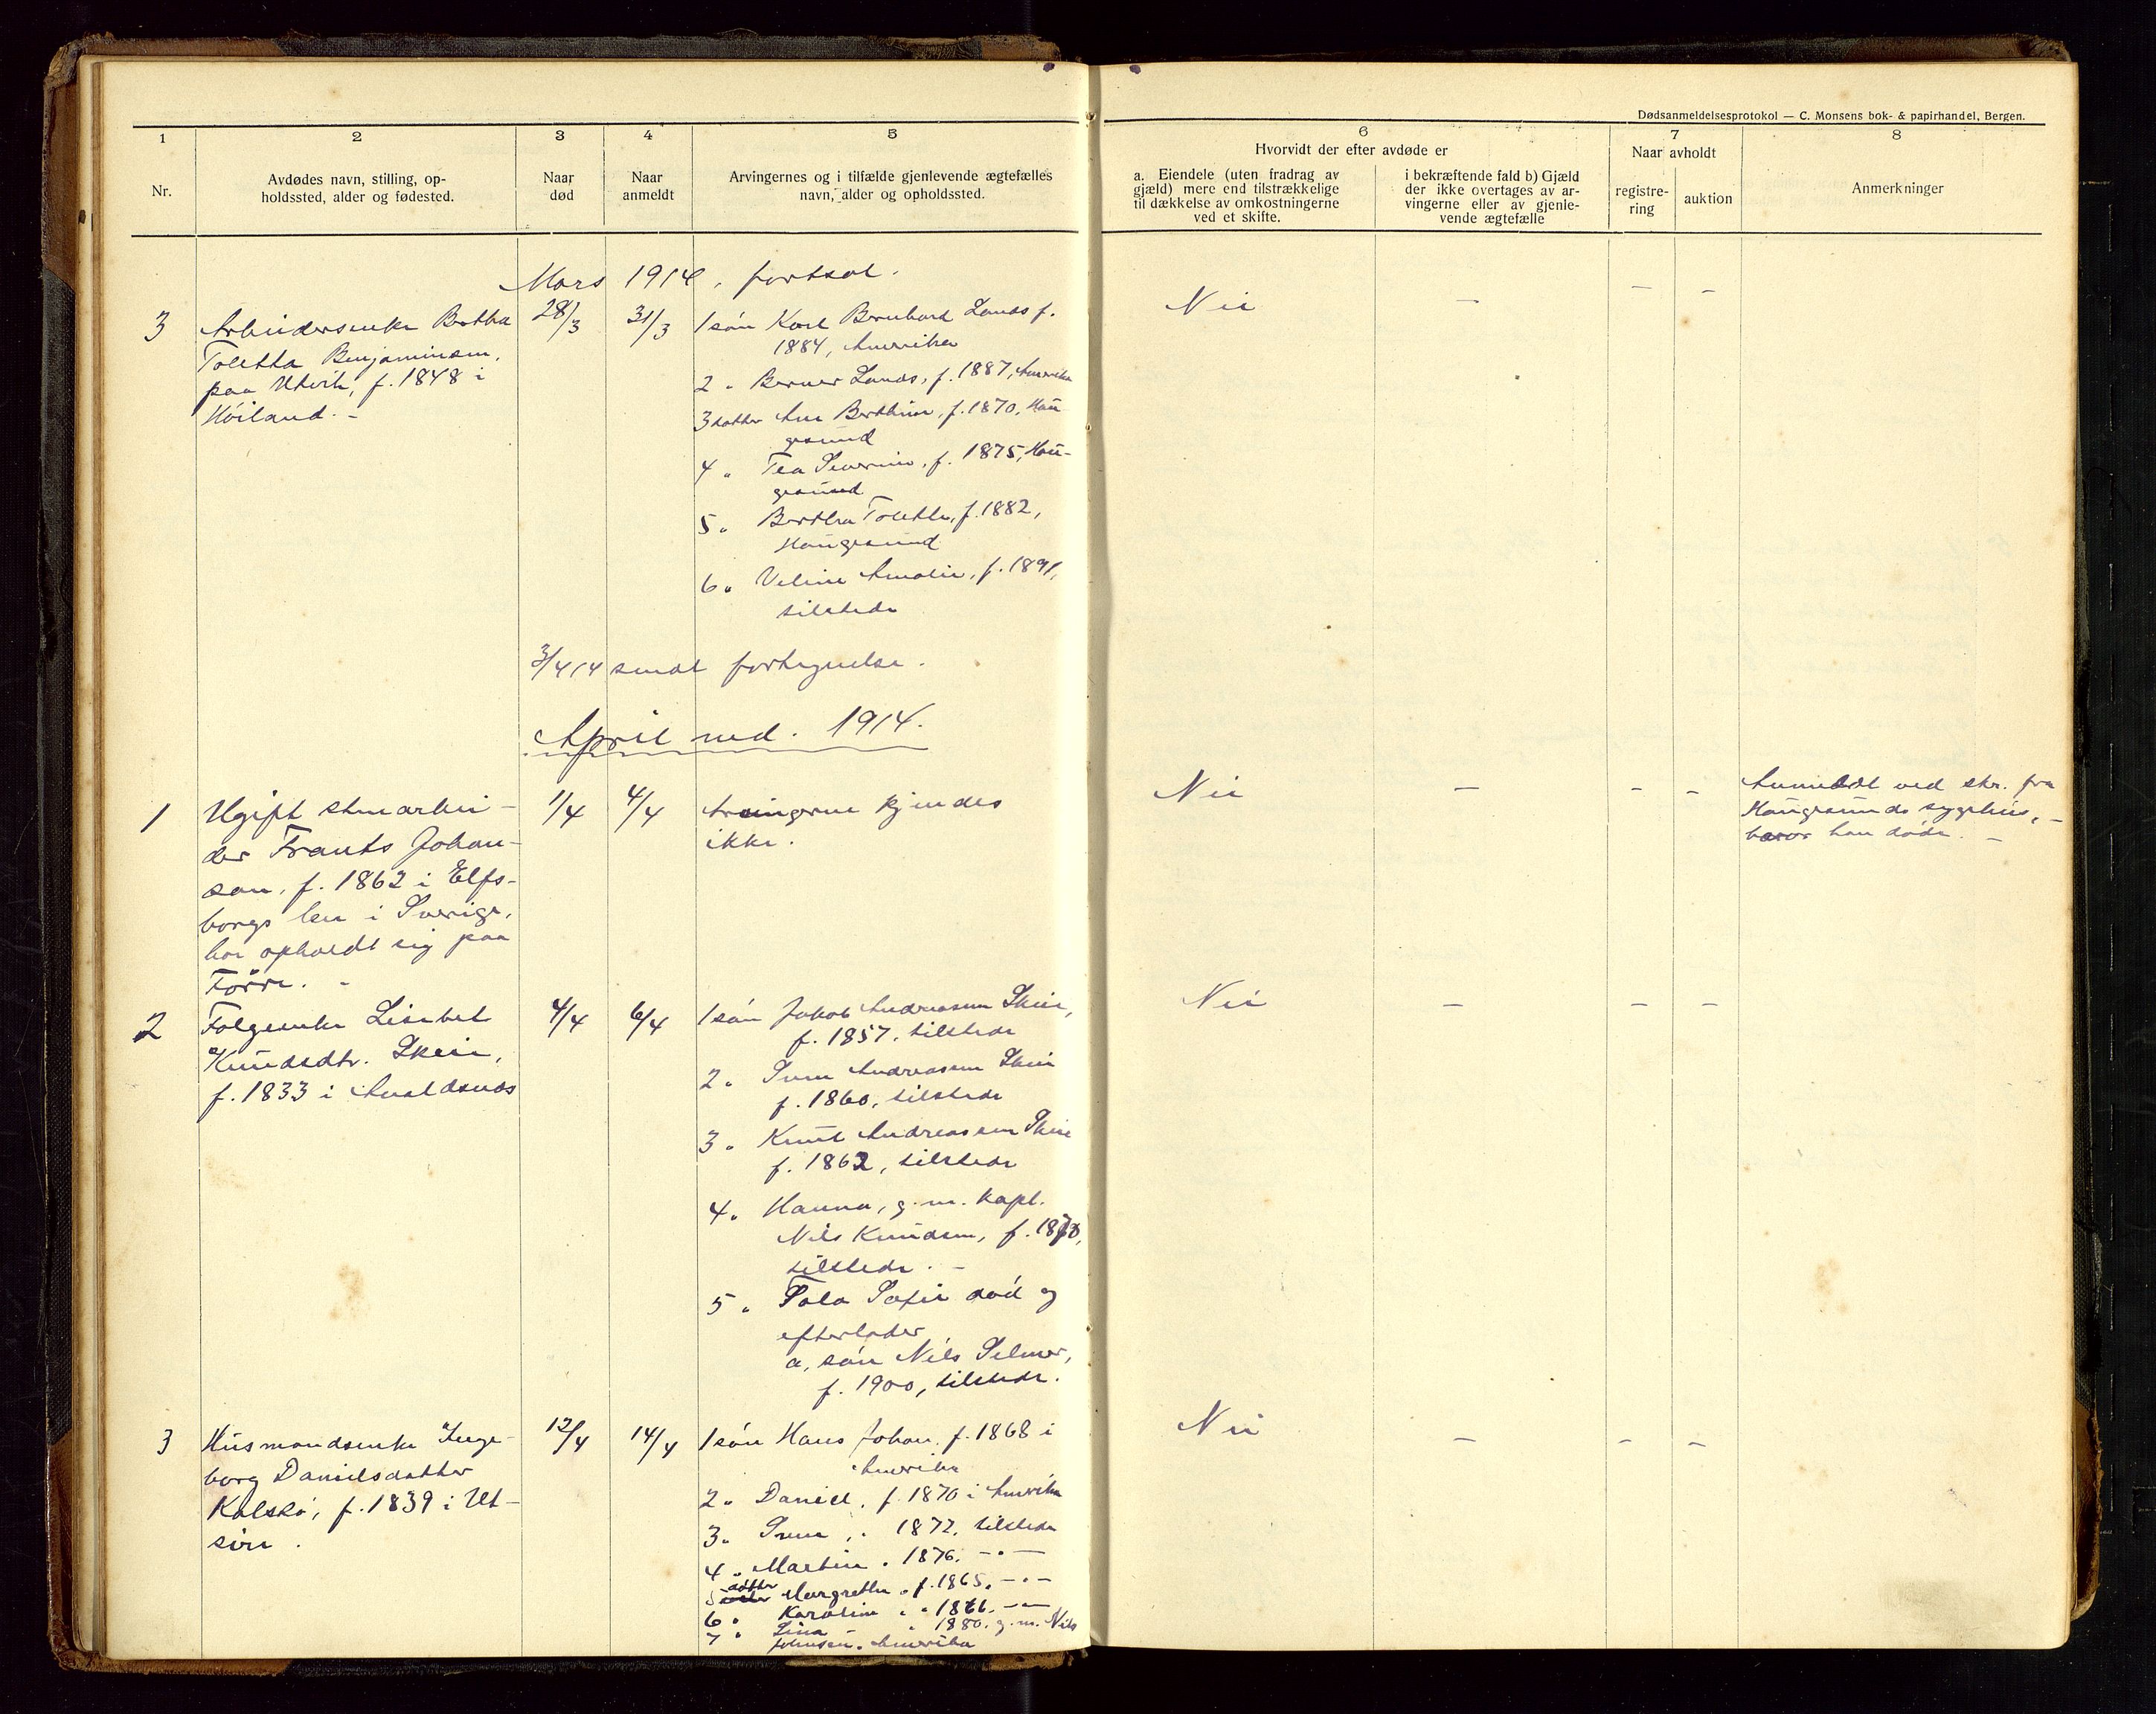 Dødsanmeldelsesprotokol — C. Monsens bok- & papirhandel, Bergen.
1
2
3
4
5
6
7
8
Nr.
Avdødes navn, stilling, op-
holdssted, alder og fødested.
Naar
død
Naar
anmeldt
Arvingernes og i tilfælde gjenlevende ægtefælles
navn, alder og opholdssted.
Hvorvidt der efter avdøde er
a. Eiendele (uten fradrag av
gjæld) mere end tilstrækkelige
til dækkelse av omkostningerne
ved et skifte.
i bekræftende fald b) Gjæld
der ikke overtages av ar-
vingerne eller av gjenle-
vende ægtefælle
Naar avholdt
registre-
ring
auktion
Anmerkninger
Mars 1914, fortsat.
3
Arbeiderenke Bertha
Toletta Benjaminsen,
paa Utvik, f. 1848 i
Høiland. -
28/3
31/3
1 søn Karl Bernhard Lands f.
1884, Amerika
2 " Berner Lands, f. 1887, Amerika
3 datter Ane Berthine, f. 1870, Hau-
gesund
4 " Tea Severine, f. 1875, Hau-
gesund
5 " Bertha Toletta, f. 1882,
Haugesund
6 " Veline Amalie, f. 1891,
tilstede
Nei
-
-
-
3/4 14 sendt fortegnelse.
April md. 1914.
1
Ugift stenarbei-
der Frants Johan-
son, f. 1862 i Elfs-
borgs len i Sverige,
har opholdt sig paa
Førre. -
1/4
4/4
Arvingerne kjendes
ikke.
Nei
-
-
-
Anmeldt ved skr. fra
Haugesunds sygehus, -
hvor han døde. -
2
Følgeenke Lisabet
Knudsdtr. Skeie,
f. 1833 i Avaldsnes
4/4
6/4
1 søn Jakob Andreassen Skeie,
f. 1857, tilstede
2 " Sven Andreassen Skeie
f. 1860, tilstede
3 " Knut Andreassen Skeie
f. 1862, tilstede
4 " Hanna, g. m. kapt.
Nils Knudsen, f. 1870,
tilstede. -
5 " Tala Sofie død og
efterlader
a, søn Nils Selmer,
f. 1900, tilstede.
Nei
-
-
-
3
Husmandsenke Inge-
borg Danielsdatter
Kalstø, f. 1839 i Ut-
sire.
12/4
14/4
1 søn Hans Johan, f. 1868 i
Amerika
2 " Daniel, f. 1870 i Amerika
3 " Sven, " 1872, tilstede
4 " Martin " 1876, - " -
5 datter Margrethe " f. 1865, - " -
6 " Karoline " " 1866, - " -
7 " Lina " 1880, g. m. Nils
Johnsen, Amerika
Nei
-
-
-